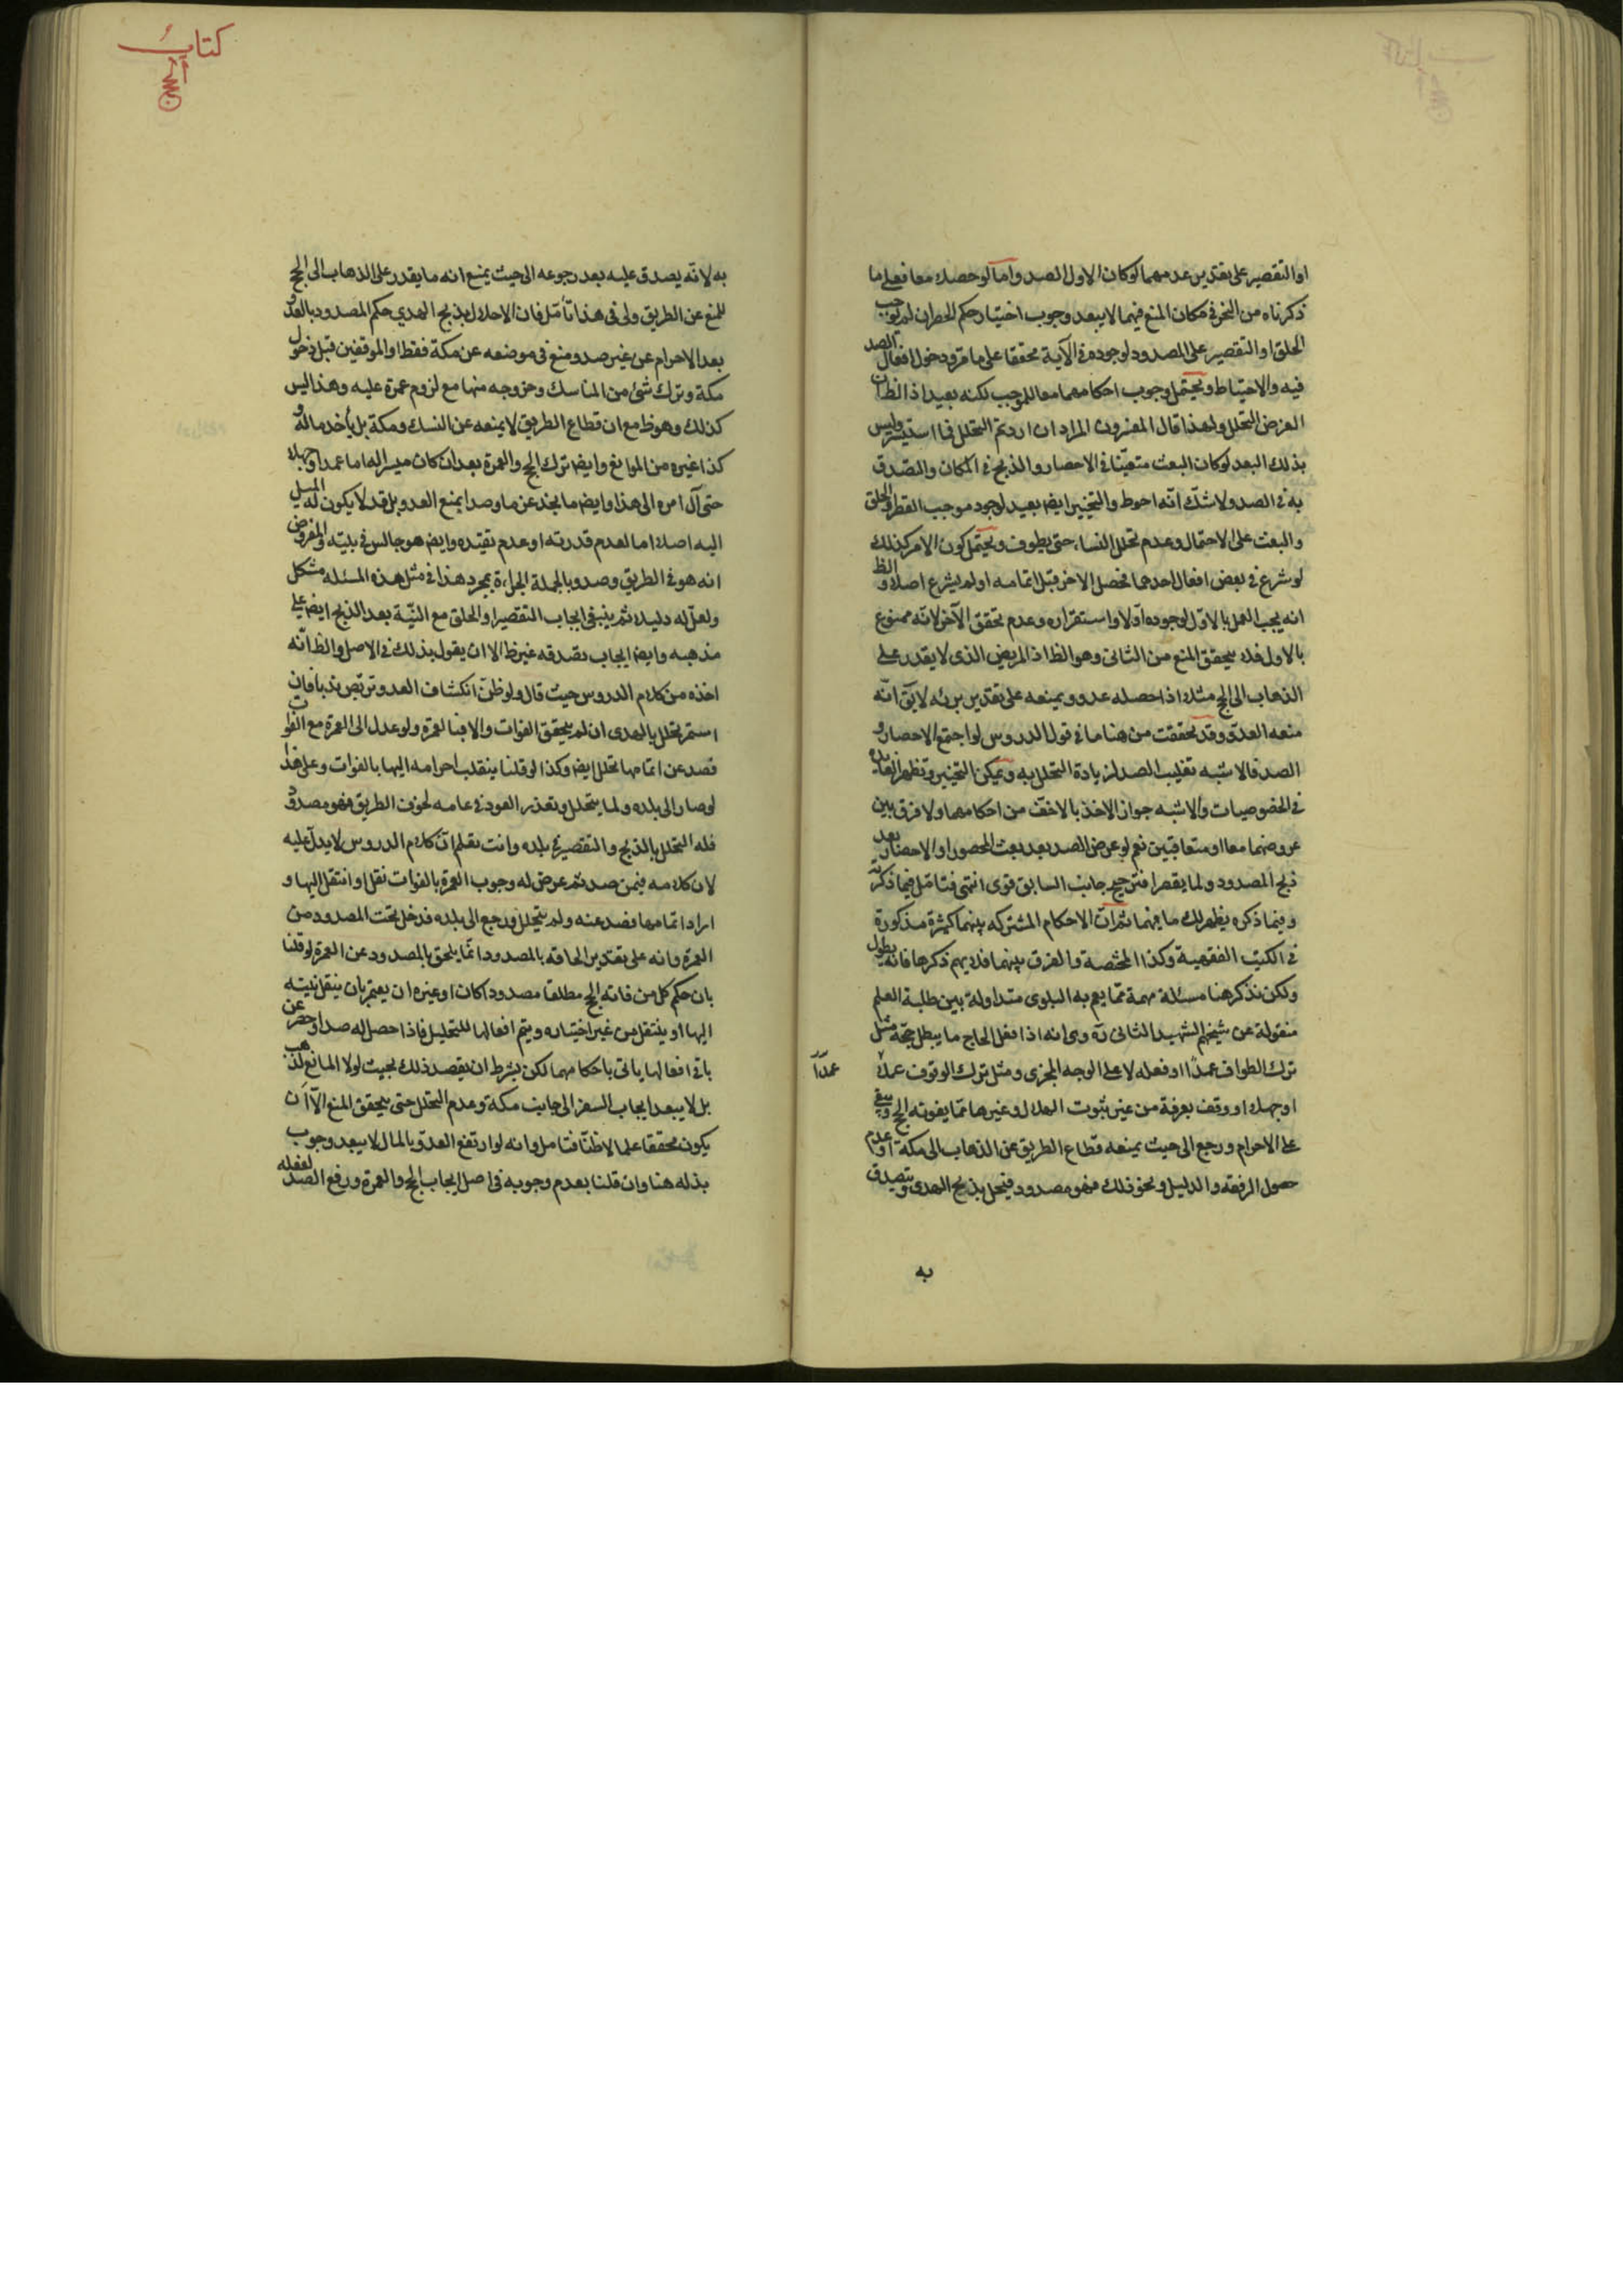 او التقصير على تقدير عدمهما لو كان الاول الصد واما لو حصلا معا فعلى ما
ذكرناه من النحر فى مكان المنع فيهما لا يبعد وجوب اختيار حكم الحصر ان لم نوجب
الحلق او التقصير على المصدود لوجوده فى الآية محققا على ما مر ودخول افعال الصد
فيه والاحتياط ويحتمل وجوب احكامهما معا للموجب لكنه بعيد اذ الظ ان
الغرض التحلل ولهذا قال المفسرون المراد ان اردتم التحلل فما استيسر وليس
بذلك البعد لو كان البعث متعينا فى الاحصار والذبح فى المكان والتصدق
به فى الصد ولا شك انه احوط والتخيير ايضا بعيد لوجود موجب القطر والحلق
والبعث على الاحتمال وعدم تحلل النساء حتى يطوف ويحتمل كون الامر كذلك
لو شرع فى بعض افعال احدهما فحصل الاخر قبل اتمامه او لم يشرع اصلا والظ
انه يجب العمل بالاول لوجوده اولا واستقراره وعدم تحقق الآخر لانه ممنوع
بالاول فلا يتحقق المنع من الثانى وهو الظ اذ المريض الذى لا يقدر على
الذهاب الى الحج مثلا اذا حصل له عدو ويمنعه على تقدير برئه لا يق انه
منعه العدو وقد تحققت من هنا ما فى قول الدروس لو اجتمع الاحصار و
الصد فالاشبه تغليب الصد لزيادة التحلل به ويمكن التخيير وتظهر الفائدة
فى الخصوصيات والاشبه جواز الاخذ بالاخف من احكامهما ولا فرق بين
عروضهما معا او متعاقبين نعم لو عرض الصد بعد بعث المحصور او الاحصار بعد
ذبح المصدود ولما يقصر فترجيح جانب السابق قوى انتهى فتامل فيما ذكرته
وفيما ذكره يظهر لك ما فيهما ثم ان الاحكام المشتركه بينهما كثيرة مذكورة
فى الكتب الفقهية وكذا المختصة والفرق بينهما فلا يهم ذكرها فانه يطول
ولكن نذكر هنا مسئلة مهمة مما يعم به البلوى متداولة بين طلبة العلم
منقولة عن شيخهم الشهيد الثانى ره وهى انه اذا فعل الحاج ما يبطل حجه مثل
ترك الطواف عمدا او فعله لا على الوجه المجزى ومثل ترك الوقوف عمدا
عمدا
او جهلا او وقف بعرفة من غير ثبوت الهلال وغيرها مما يفوته الحج ويبقى
على الاحرام ورجع الى حيث يمنعه قطاع الطريق عن الذهاب الى مكة او عدم
حصول الرفقه والدليل ونحو ذلك فهو مصدود فيحل بذبح الهدى ويتصدق
به
كتاب
الحج
به لانه يصدق عليه بعد رجوعه الى حيث يمنع انه ما يقدر على الذهاب الى الحج
للمنع عن الطريق ولى فى هذا تامل فان الاحلال بذبح الهدي حكم المصدود بالعدو
بعد الاحرام عن غير صد ومنع فى موضعه عن مكة فقط او الموقفين قبل دخول
مكة وترك شئ من المناسك وخروجه منها مع لزوم عمرة عليه وهذا ليس
كذلك وهو ظ مع ان قطاع الطريق لا يمنعه عن النسك ومكة بل يأخذ ماله و
كذا غيره من الموانع وايضا ترك الحج والعمرة بعد ان كان ميسرا له اما عمدا وجهلا
حتى آل امره الى هذا وايضا ما نجد عن ما وصد ايمنع العدو بل قد لا يكون له الميل
اليه اصلا اما لعدم قدرته او عدم تقيده وايضا هو جالس فى بيته والمفروض
انه هو فى الطريق وصد وبالجملة الجراءة بمجرد هذا فى مثل هذه المسئله مشكل
ولعل له دليلا ثم ينبغى ايجاب التقصير او الحلق مع النية بعد الذبح ايضا على
مذهبه وايضا ايجاب تصدقه غير ظ الا ان يقول بذلك فى الاصل والظ انه
اخذه من كلام الدروس حيث قال ولو ظن انكشاف العدو تربص ندبا فان
استمر تحلل بالهدى ان لم يتحقق الفوات والا فبالعمرة ولو عدل الى العمرة مع الفوات
فصد عن اتمامها تحلل ايضا وكذا لو قلنا ينقلب احرامه اليها بالفوات وعلى هذا
لو صار الى بلده ولما يتحلل وتعذر العود فى عامه لخوف الطريق فهو مصدود
فله التحلل بالذبح والتقصير فى بلده وانت تعلم ان كلام الدروس لا يدل عليه
لان كلامه فيمن صد ثم عرض له وجوب العمرة بالفوات نقل او انتقل اليها و
اراد اتمامها فصد عنه ولم يتحلل ورجع الى بلده فدخل تحت المصدود من
العمرة وانه على تقدير الحاقه بالمصدود انما يلحق بالمصدود عن العمرة لو قلنا
بان حكم كل من فاته الحج مطلقا مصدودا كان او غيره ان يعتمر بان ينقل نيته
اليها او ينتقل من غير اختياره ويتم افعالها للتحليل فاذا حصل له صد او حصر عن
باقى افعالها ياتى باحكامهما لكن بشرط ان يقصد ذلك بحيث لولا المانع لذهب
بل لا يبعد ايجاب السفر الى جانب مكة وعدم التحلل حتى يتحقق المنع الا ان
يكون محققا علما لا ظنا فتامل وانه لو ارتفع العدو بالمال لا يبعد وجوب
بذله هنا وان قلنا بعدم وجوبه فى اصل ايجاب الحج والعمرة ورفع الصد لفعله